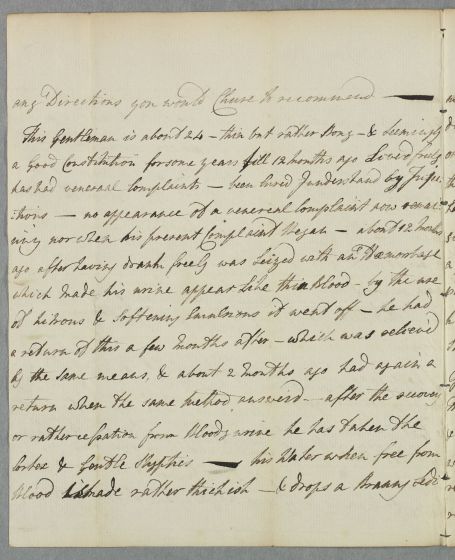 any Directions you would Chuse to recommend —
This Gentleman is about 24 - thin but rather Strong - & seemingly
a Good Constitution for some years till 12 months ago Lived freely
has had venereal Complaints - been Cured I understand by Injec
:tions - no appearance of a venereal Complaint now remai
ning nor when his present Complaint began - about 12 Months
ago after having drank freely was Seized with an Hæmorhage
which made his urine appear Like thin Blood - by the use
of Nitrous & Softening Emulsions it went off - he had
a return of this a few Months after - which was relieved
by the Same means, & about 2 Months ago had again a
return when the same method answerd - after the recovery
or rather cessation from bloody urine he has taken the
Cortex & Gentle Stypticks — his Water when free from
Blood is made rather thickish - & drops a Branny Sedi